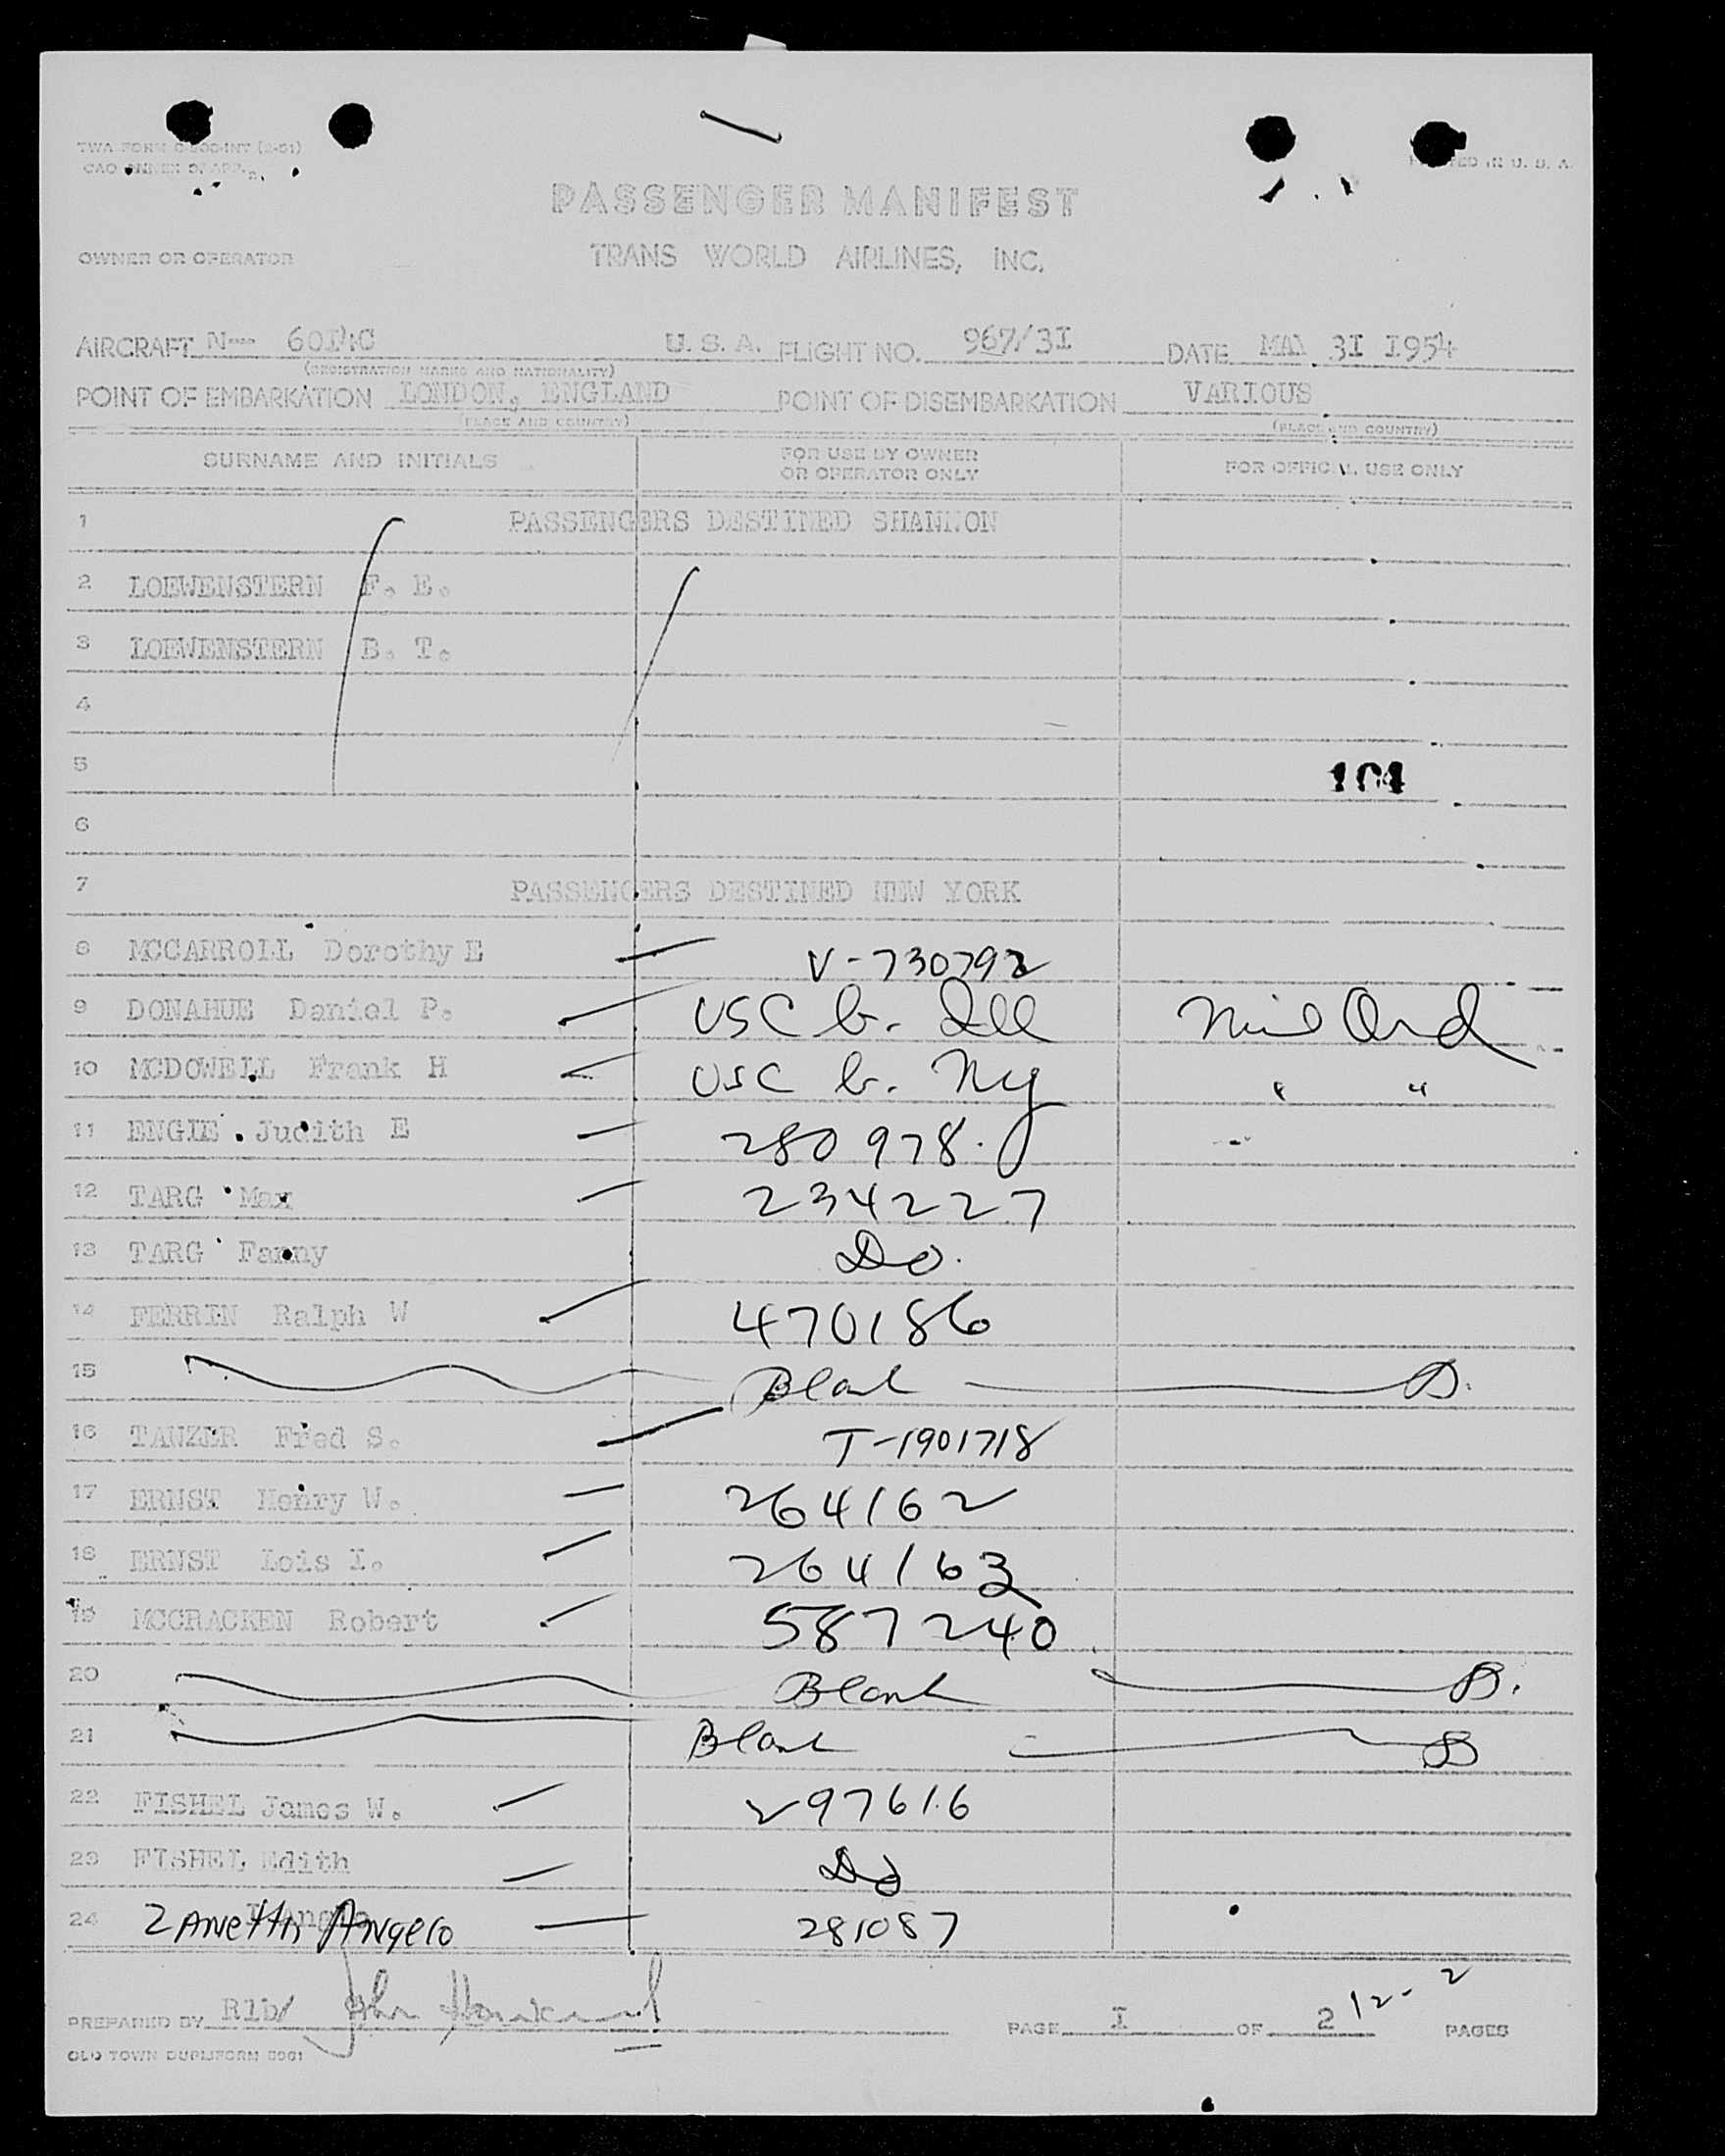 TWA FORM
OWNER OR OPERATOR
PRINTED IN U. S. A.
PASSENGER MANIFEST
TRANS WORLD AIRLINES, INC.
AIRCRAFT N-- U. S. A. FLIGHT NO. 967/3I DATE MAY 3I I954
(REGISTRATION MARKS AND NATIONALITY)
POINT OF EMBARKATION LONDON, ENGLAND POINT OF DISEMBARKATION VARIOUS
(PLACE AND COUNTRY) (PLACE AND COUNTRY)
SURNAME AND INITIALS FOR USE BY OWNER OR OPERATOR ONLY FOR OFFICIAL USE ONLY
1 PASSENGERS DESTINED SHANNON
2 LOEWENSTERN F. E.
3 LOEWENSTERN B. T.
4
5 104
6
7 PASSENGERS DESTINED NEW YORK
8 MCCARROLL Dorothy E V-730792
9 DONAHUE Daniel P. USC b. Ill Ord
10 MCDOWELL Frank H USC b. Ny " "
11 ENGIE Judith E 280978.
12 TARG Max 234227
13 TARG Fanny Do.
14 FERRIN Ralph W 470186
15 Blank B.
16 TANZER Fred S. T-1901718
17 ERNST Henry W. 264162
18 ERNST Lois I. 264163
19 MCCRACKEN Robert 587240
20 Blank B.
21 Blank B
22 FISHEL James W. 297616
23 FISHEL Edith Do
24 Angelo 281087
PREPARED BY Rlb/ John PAGE I OF 2 PAGES 12-2
OLD TOWN DUPLIFORM